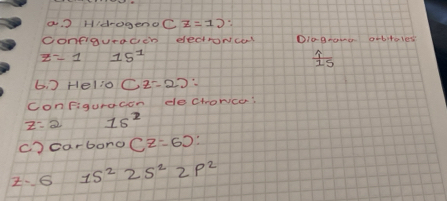 a.) Hidrogeno (Z=1):
Configuración electronica: Diagrama orbitales
Z=1 1S¹ ↑
1S
b.) Helio (Z=2):
Configuracon electronica:
Z=2 1S²
c) Carbono (Z=6):
Z=6 1S² 2S² 2P²